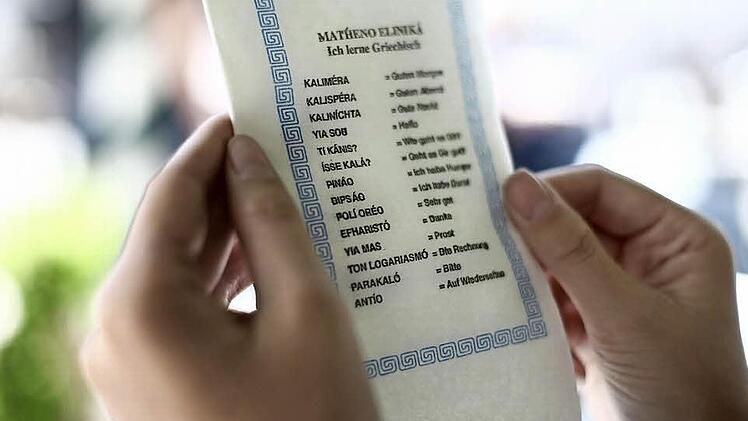 MATHENO ELINIKÁ
Ich lerne Griechisch
KALIMÉRA = Guten Morgen
KALISPÉRA = Guten Abend
KALINÍCHTA = Gute Nacht
YIA SOU = Hallo
TI KÁNIS? = Wie geht es Dir?
ÍSSE KALÁ? = Geht es Dir gut?
PINÁO = Ich habe Hunger
DIPSÁO = Ich habe Durst
POLÍ ORÉO = Sehr gut
EFHARISTÓ = Danke
YIA MAS = Prost
TON LOGARIASMÓ = Die Rechnung
PARAKALÓ = Bitte
ANTÍO = Auf Wiedersehen